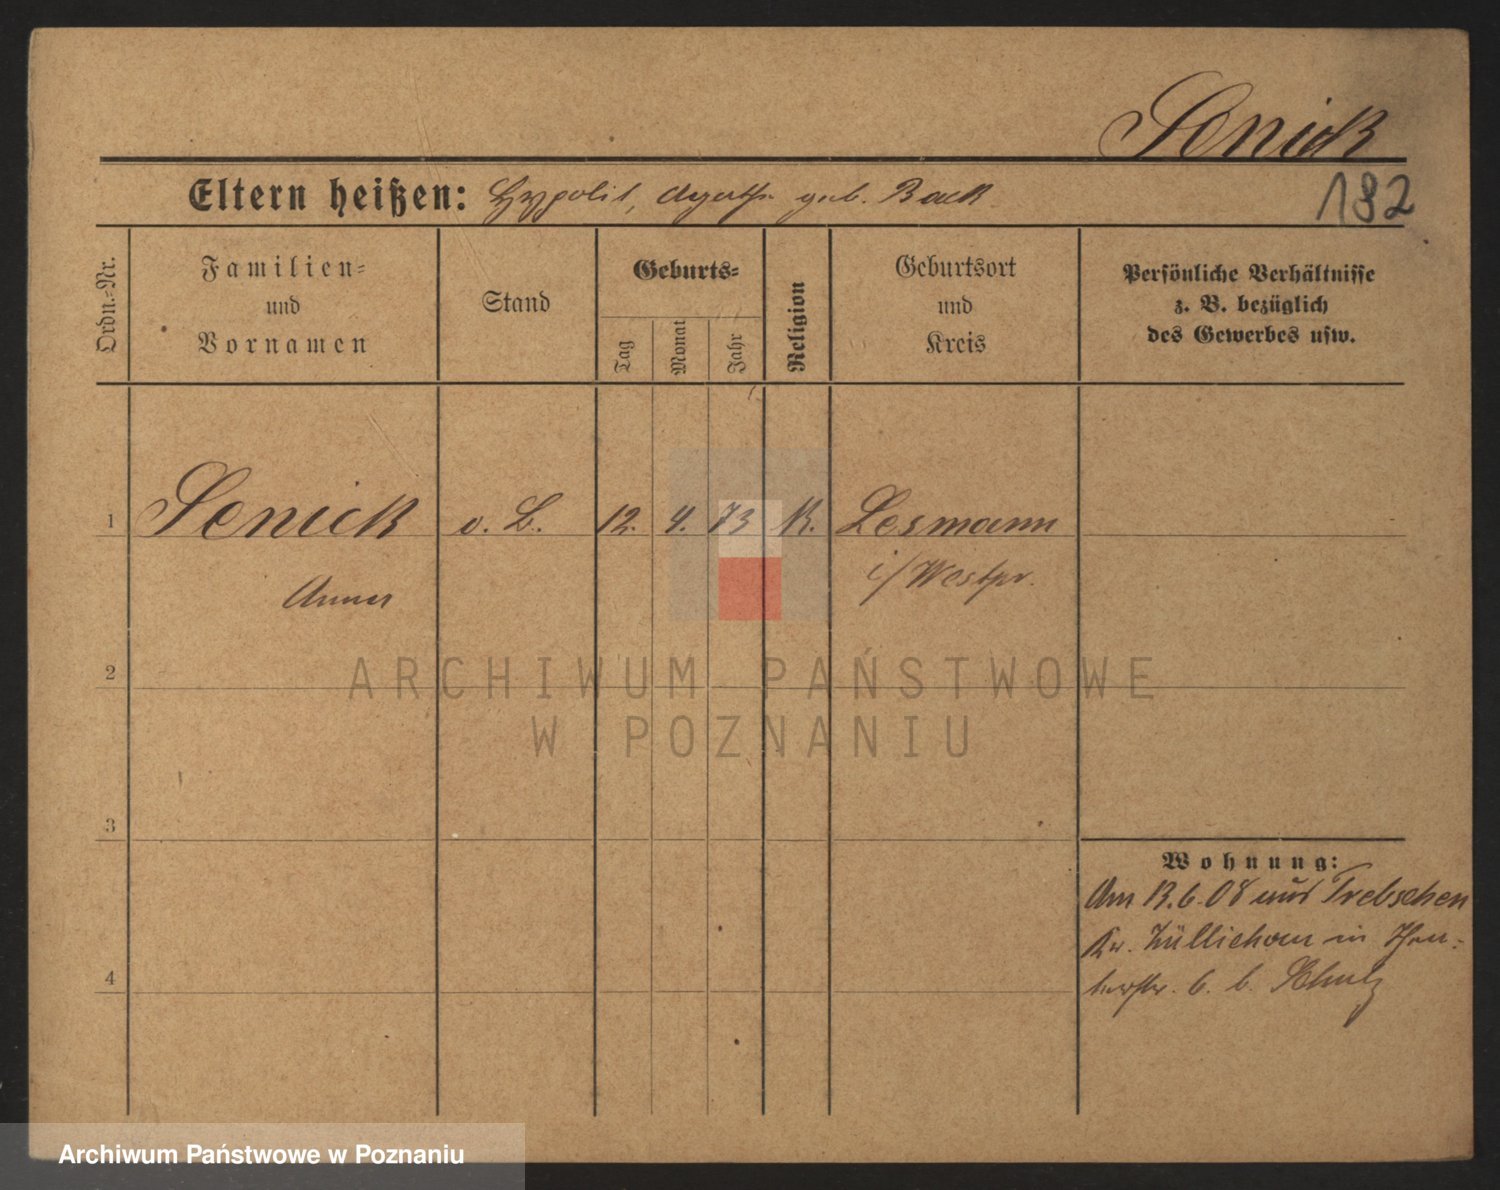 Senick
Eltern heißen: Hypolit, Agathe geb. Back
182
Ordn.-Nr.
Familien-
und
Vornamen
Stand
Geburts-
Tag
Monat
Jahr
Religion
Geburtsort
und
Kreis
Persönliche Verhältnisse
z. B. bezüglich
des Gewerbes usw.
1 Senick v. L. 12. 4. 73 K. Lesmann
Anna i/Westpr.
2
3
4
Wohnung:
Am 13.6.08 aus Trebschen
Kr. Züllichau in
6. b. Schulz
ARCHIWUM PAŃSTWOWE
W POZNANIU
Archiwum Państwowe w Poznaniu